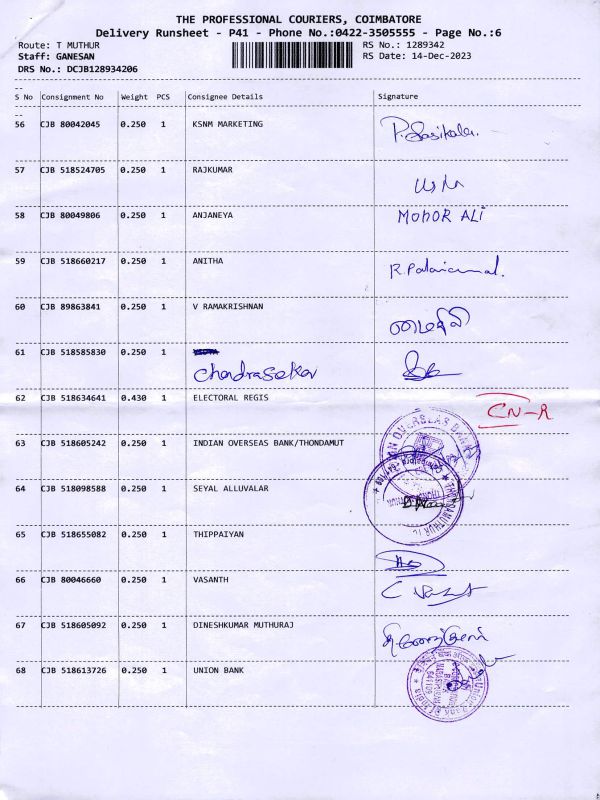 THE PROFESSIONAL COURIERS, COIMBATORE
Delivery Runsheet - P41 - Phone No.:0422-3505555 - Page No.:6
Route: T MUTHUR RS No.: 1289342
Staff: GANESAN RS Date: 14-Dec-2023
DRS No.: DCJB128934206
S No Consignment No Weight PCS Consignee Details Signature
56 CJB 80042045 0.250 1 KSNM MARKETING P. Sasikala.
57 CJB 518524705 0.250 1 RAJKUMAR
58 CJB 80049806 0.250 1 ANJANEYA MOHOR ALI
59 CJB 518660217 0.250 1 ANITHA
60 CJB 89863841 0.250 1 V RAMAKRISHNAN
61 CJB 518585830 0.250 1
Chandrasekar
62 CJB 518634641 0.430 1 ELECTORAL REGIS CN-R
63 CJB 518605242 0.250 1 INDIAN OVERSEAS BANK/THONDAMUT
64 CJB 518098588 0.250 1 SEYAL ALLUVALAR
65 CJB 518655082 0.250 1 THIPPAIYAN
66 CJB 80046660 0.250 1 VASANTH
67 CJB 518605092 0.250 1 DINESHKUMAR MUTHURAJ
68 CJB 518613726 0.250 1 UNION BANK